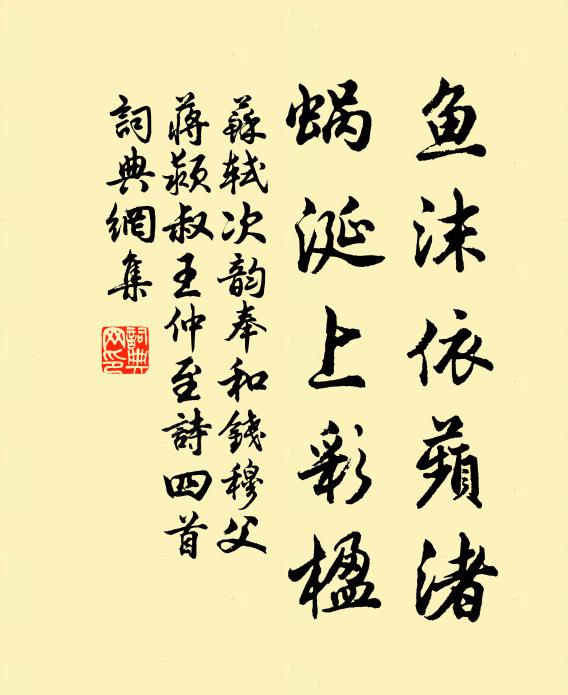 鱼沫依蘋渚
蜗涎上彩楹
蘇軾次韵奉和錢穆父
蔣颖叔王仲至詩四首
詞典網集
詞典网印